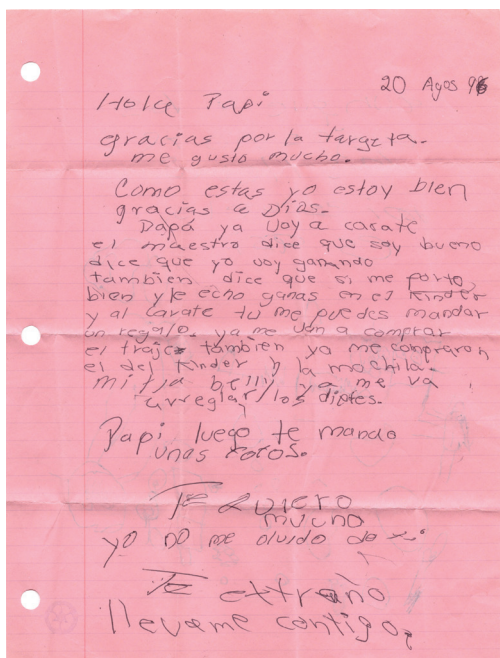 20 Agos 96
Hola Papi
gracias por la targeta.
me gusto mucho.
Como estas yo estoy bien
gracias a Dios.
Papá ya voy a carate
el maestro dice que soy bueno
dice que yo voy ganando
tambien dice que si me porto
bien y le echo ganas en el Kinder
y al carate tu me puedes mandar
un regalo. ya me van a comprar
el traje tambien ya me compraron
el del Kinder y la mochila.
mi tia belly ya me va
arreglar los dietes.
Papi luego te mando
unas fotos.
Te quiero
mucho
yo no me olvido de ti
Te extraño
llevame contigo